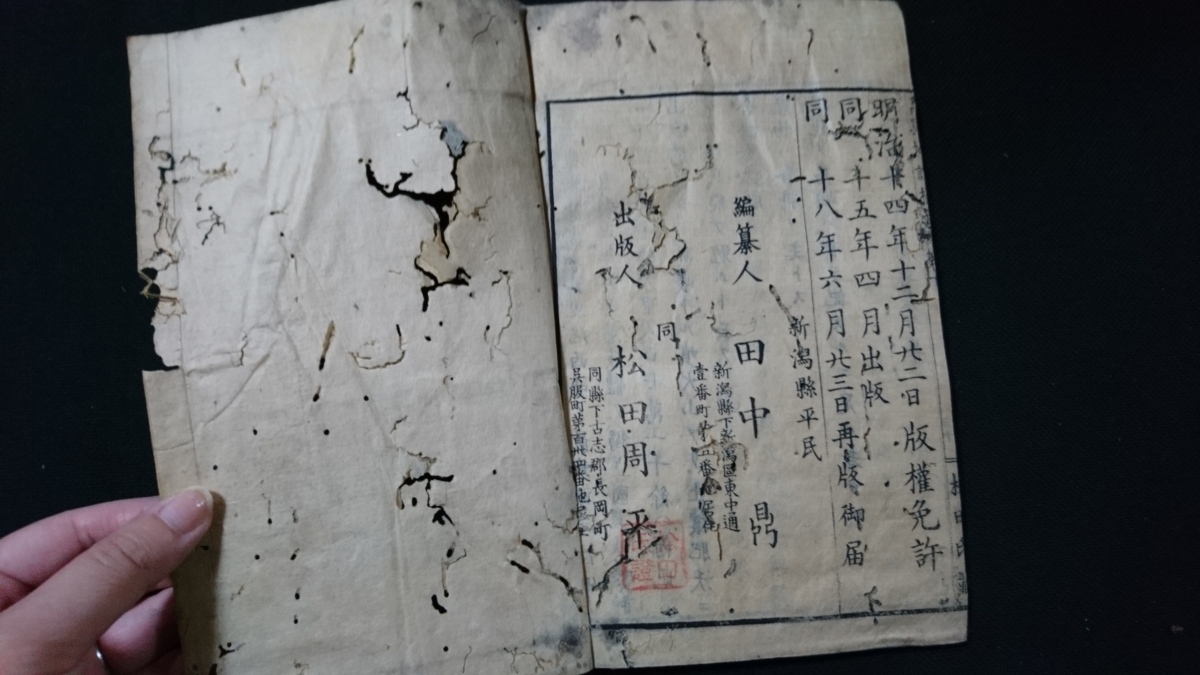 明治十四年十二月廿二日版權免許
同十五年四月出版
同十八年六月廿三日再版御届
新潟縣平民
編纂人 田中鼎
新潟縣下新潟區東中通
壹番町第
同
出版人 松田周平
同縣下古志郡長岡町
呉服町第百